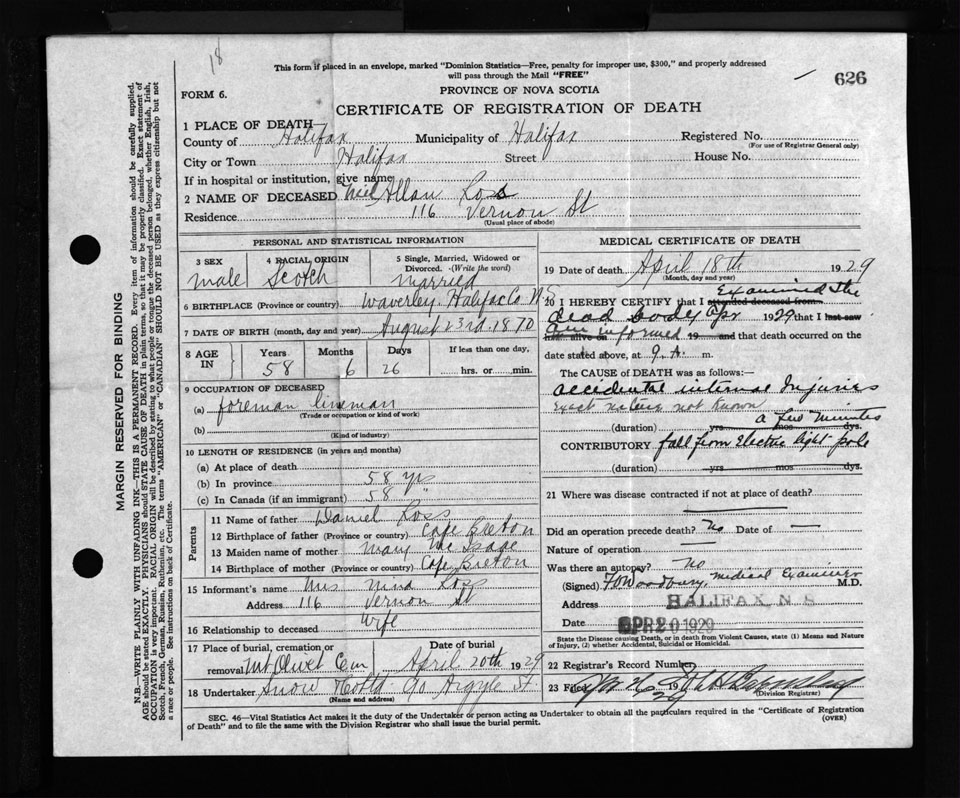 18
This form if placed in an envelope, marked "Dominion Statistics—Free, penalty for improper use, $300," and properly addressed
will pass through the Mail "FREE"
626
FORM 6.
PROVINCE OF NOVA SCOTIA
CERTIFICATE OF REGISTRATION OF DEATH
1 PLACE OF DEATH—
County of Halifax Municipality of Halifax Registered No.
(For use of Registrar General only)
City or Town Halifax Street House No.
If in hospital or institution, give name
2 NAME OF DECEASED Neil Allan Ross
Residence 116 Vernon St
(Usual place of abode)
PERSONAL AND STATISTICAL INFORMATION
3 SEX 4 RACIAL ORIGIN 5 Single, Married, Widowed or
Divorced. -(Write the word)
male Scotch married
6 BIRTHPLACE (Province or country) Waverley. Halifax Co N.S
7 DATE OF BIRTH (month, day and year) August 23rd. 1870
8 AGE IN Years Months Days If less than one day,
58 6 26 hrs. or min.
9 OCCUPATION OF DECEASED
(a) foreman lineman
(Trade or occupation or kind of work)
(b)
(Kind of industry)
10 LENGTH OF RESIDENCE (in years and months)
(a) At place of death
(b) In province 58 yrs
(c) In Canada (if an immigrant) 58 "
Parents
11 Name of father Daniel Ross
12 Birthplace of father (Province or country) Cape Breton
13 Maiden name of mother Mary Mc Isaac
14 Birthplace of mother (Province or country) Cape Breton
15 Informant's name Mrs Nina Ross
Address 116 Vernon St
16 Relationship to deceased Wife
17 Place of burial, cremation or Date of burial
removal Mt Olivet Cem April 20th 1929
18 Undertaker Snow & Co Argyle St.
(Name and address)
MEDICAL CERTIFICATE OF DEATH
19 Date of death April 18th 1929
(Month, day and year)
20 I HEREBY CERTIFY that I attended deceased from Examined the
dead body Apr 1929 that I last saw
am informed 19 and that death occurred on the
date stated above, at 9. A. m.
The CAUSE OF DEATH was as follows:—
accidental internal Injuries
exact nature not known
(duration) yrs mos dys. a few minutes
CONTRIBUTORY fall from Electric light pole
(duration) yrs mos dys.
21 Where was disease contracted if not at place of death?
Did an operation precede death? No Date of —
Nature of operation —
Was there an autopsy? No
(Signed) medical Examiner M.D.
Address HALIFAX, N. S
Date APR 20 1929
State the Disease causing Death, or in death from Violent Causes, state (1) Means and Nature
of Injury, (2) whether Accidental, Suicidal or Homicidal.
22 Registrar's Record Number
23 Filed 19
(Division Registrar)
SEC. 46—Vital Statistics Act makes it the duty of the Undertaker or person acting as Undertaker to obtain all the particulars required in the "Certificate of Registration
of Death" and to file the same with the Division Registrar who shall issue the burial permit.
(OVER)
MARGIN RESERVED FOR BINDING
N.B.—WRITE PLAINLY WITH UNFADING INK—THIS IS A PERMANENT RECORD. Every item of information should be carefully supplied.
AGE should be stated EXACTLY. PHYSICIANS should STATE CAUSE OF DEATH in plain terms, so that it may be properly classified. Exact statement of
OCCUPATION is very important. RACIAL ORIGIN will be described by stating to what people or tongue the deceased person belonged, whether English, Irish,
Scotch, French, German, Russian, Ruthenian, etc. The terms "AMERICAN" or "CANADIAN" SHOULD NOT BE USED as they express citizenship but not
a race or people. See instructions on back of Certificate.